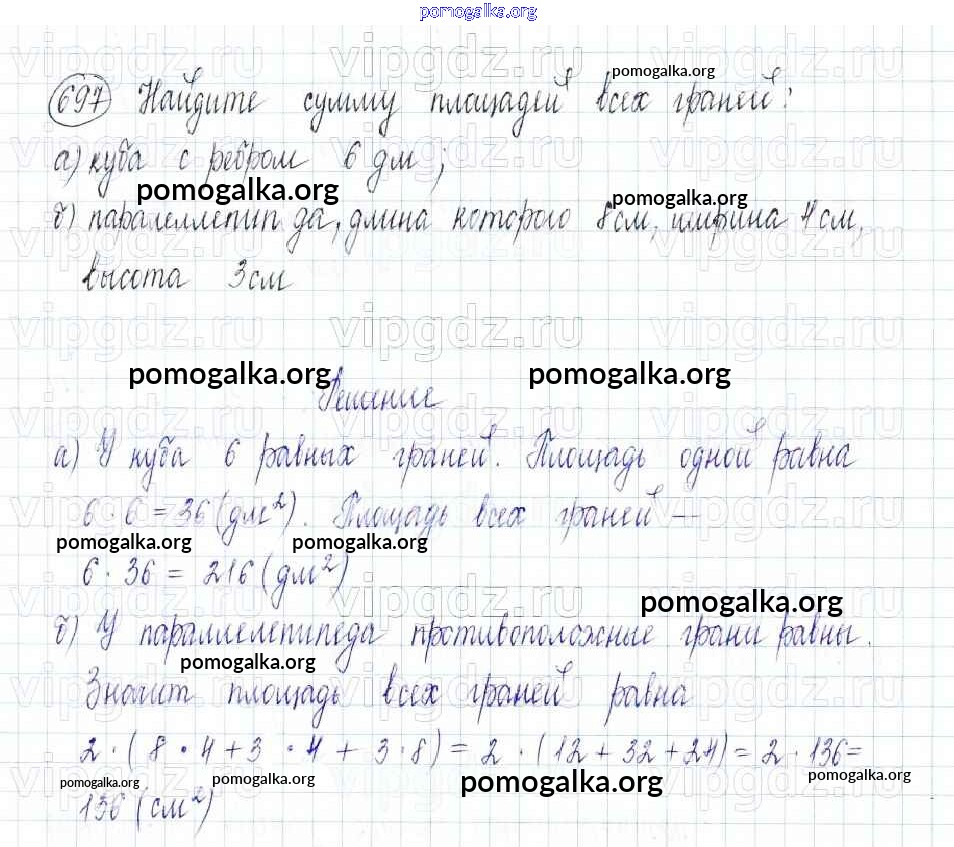 pomogalka.org
697 Найдите сумму площадей всех граней:
pomogalka.org
а) куба с ребром 6 дм;
pomogalka.org pomogalka.org
б) параллелепип да, длина которого 8 см, ширина 4 см,
высота 3 см
vipgdz.ru vipgdz.ru vipgdz.ru
pomogalka.org pomogalka.org
Решение
а) У куба 6 равных граней. Площадь одной равна
6 · 6 = 36 (дм²). Площадь всех граней —
pomogalka.org pomogalka.org
6 · 36 = 216 (дм²)
pomogalka.org
б) У параллелепипеда противоположные грани равны.
pomogalka.org
Значит площадь всех граней равна
2 · (8 · 4 + 3 · 4 + 3 · 8) = 2 · (12 + 32 + 24) = 2 · 136 =
pomogalka.org pomogalka.org pomogalka.org pomogalka.org
136 (см²)